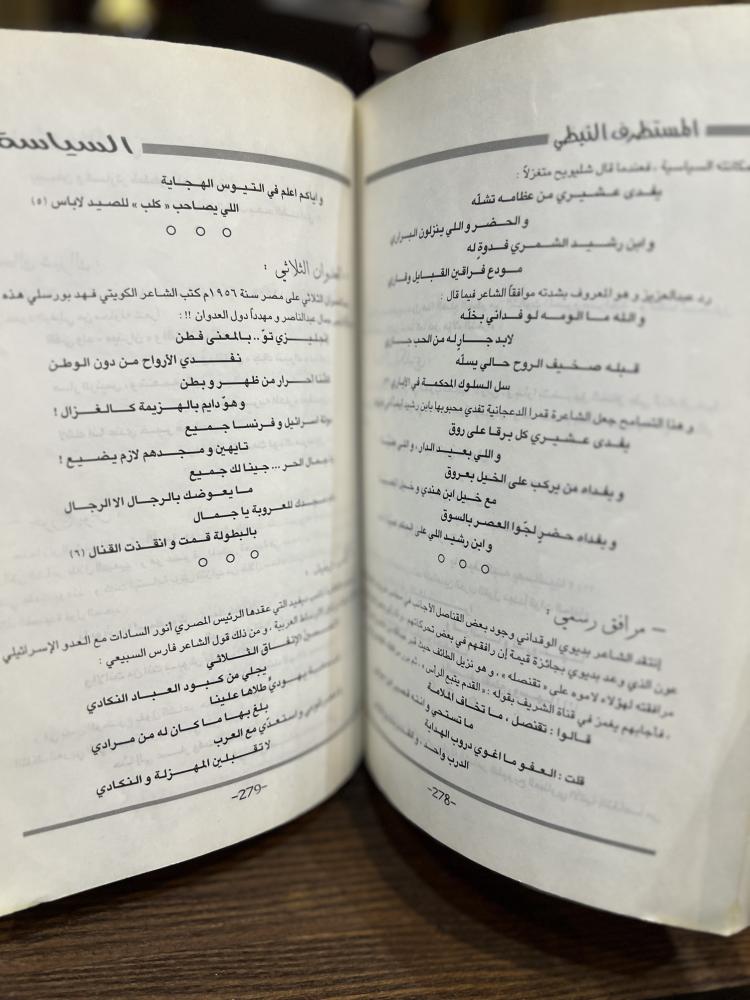 المستطرف النبطي
مكانته السياسية ، فعندما قال شليويح متغزلاً :
يفدى عشيري من عظامه تشلّه
و الحضر و اللي ينزلون البراري
و ابن رشيد الشمري فدوةٍ له
مودع فراقين القبايل وقاري
رد عبدالعزيز و هو المعروف بشدته موافقاً الشاعر فيما قال :
و الله ما الومه لو فداني بخلّه
لابد جارٍ له من الحب جاري
قبله صخيف الروح حالي يسلّه
سل السلوك المحكمة في
و هذا التسامح جعل الشاعرة قمرا الدعجانية تفدي محبوبها بابن رشيد
يفدى عشيري كل برقا على روق
و اللي بعيد الدار ، و اللي
و يفداه من يركب على الخيل بعروق
مع خيل ابن هندي و خيل
و يفداه حضرٍ لجّوا العصر بالسوق
و ابن رشيد اللي على
○ ○ ○
– مرافق رسمي :
إنتقد الشاعر بديوي الوقداني وجود بعض القناصل الأجانب في
عون الذي وعد بديوي بجائزة قيمة إن رافقهم في بعض تحركاتهم
مرافقته لهؤلاء لاموه على « تقنصله » ، و هو نزيل الطائف حيث
، فأجابهم يغمز في قناة الشريف بقوله : « القدم يتبع الرأس » ، ثم
قالوا : تقنصل ، ما تخاف الملامة
ما تستحي و انته
قلت : العفو ما اغوي دروب الهداية
الدرب واحد ، و
-278-
السياسة
و اياكم اعلم في التيوس الهجاية
اللي يصاحب « كلب » للصيد لاباس (٥)
○ ○ ○
العدوان الثلاثي :
الثلاثي على مصر سنة ١٩٥٦م كتب الشاعر الكويتي فهد بورسلي هذه
جمال عبدالناصر و مهدداً دول العدوان !! :
إنجليزي توّ .. بالمعنى فطن
نفدي الأرواح من دون الوطن
احرار من ظهر و بطن
و هوّ دايم بالهزيمة كالغزال !
اسرائيل و فرنسا جميع
تايهين و مجدهم لازم يضيع !
جمال الحر ... جينا لك جميع
ما يعوضك بالرجال الا الرجال
للعروبة يا جمال
بالبطولة قمت و انقذت القنال (٦)
○ ○ ○
التي عقدها الرئيس المصري أنور السادات مع العدو الإسرائيلي
العربية ، و من ذلك قول الشاعر فارس السبيعي :
الإتفاق الثلاثي
يجلي من كبود العباد النكادي
يهوديٍّ طلاها علينا
بلغ بها ما كان له من مرادي
و استعدّي مع العرب
لا تقبلين المهزلة و النكادي
-279-